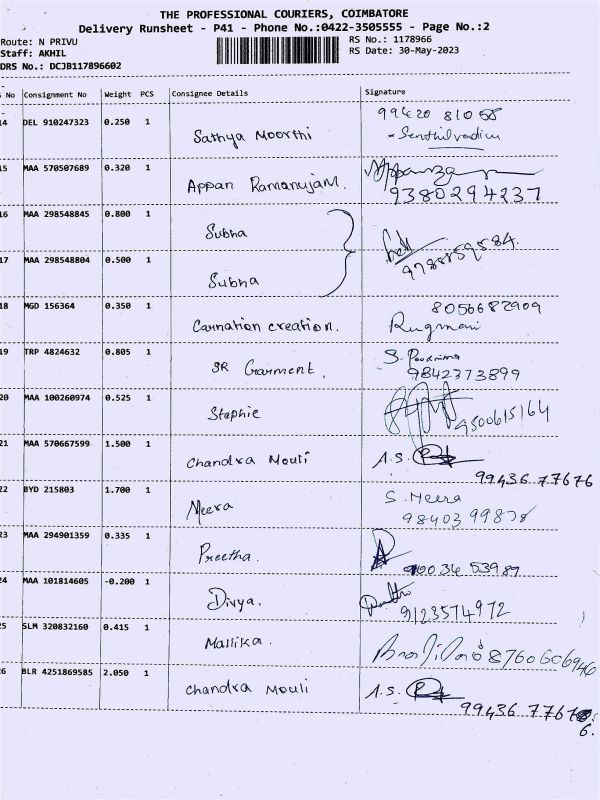 THE PROFESSIONAL COURIERS, COIMBATORE
Delivery Runsheet - P41 - Phone No.:0422-3505555 - Page No.:2
Route: N PRIVU RS No.: 1178966
Staff: AKHIL RS Date: 30-May-2023
DRS No.: DCJB117896602
No Consignment No Weight PCS Consignee Details Signature
14 DEL 910247323 0.250 1 Sathya Moorthi 99420 81058
- Senthilvadivu
15 MAA 570507689 0.320 1 Appan Ramanujam. 9380294237
16 MAA 298548845 0.800 1 Subha
17 MAA 298548804 0.500 1 Subha
18 MGD 156364 0.350 1 Carnation creation. 8056682909
Rugmani
19 TRP 4824632 0.805 1 SR Garment. S. Poornima
9842373899
20 MAA 100260974 0.525 1 Staphie 9500615164
21 MAA 570667599 1.500 1 Chandra Mouli A.S.
99436 77676
22 BYD 215803 1.700 1 Meera S. Meera
98403 99878
23 MAA 294901359 0.335 1 Preetha. 90036 53987
24 MAA 101814605 -0.200 1 Divya. 9123574972
25 SLM 320832160 0.415 1 Mallika. 8760606946
26 BLR 4251869585 2.050 1 Chandra Mouli A.S.
99436 7767
6.